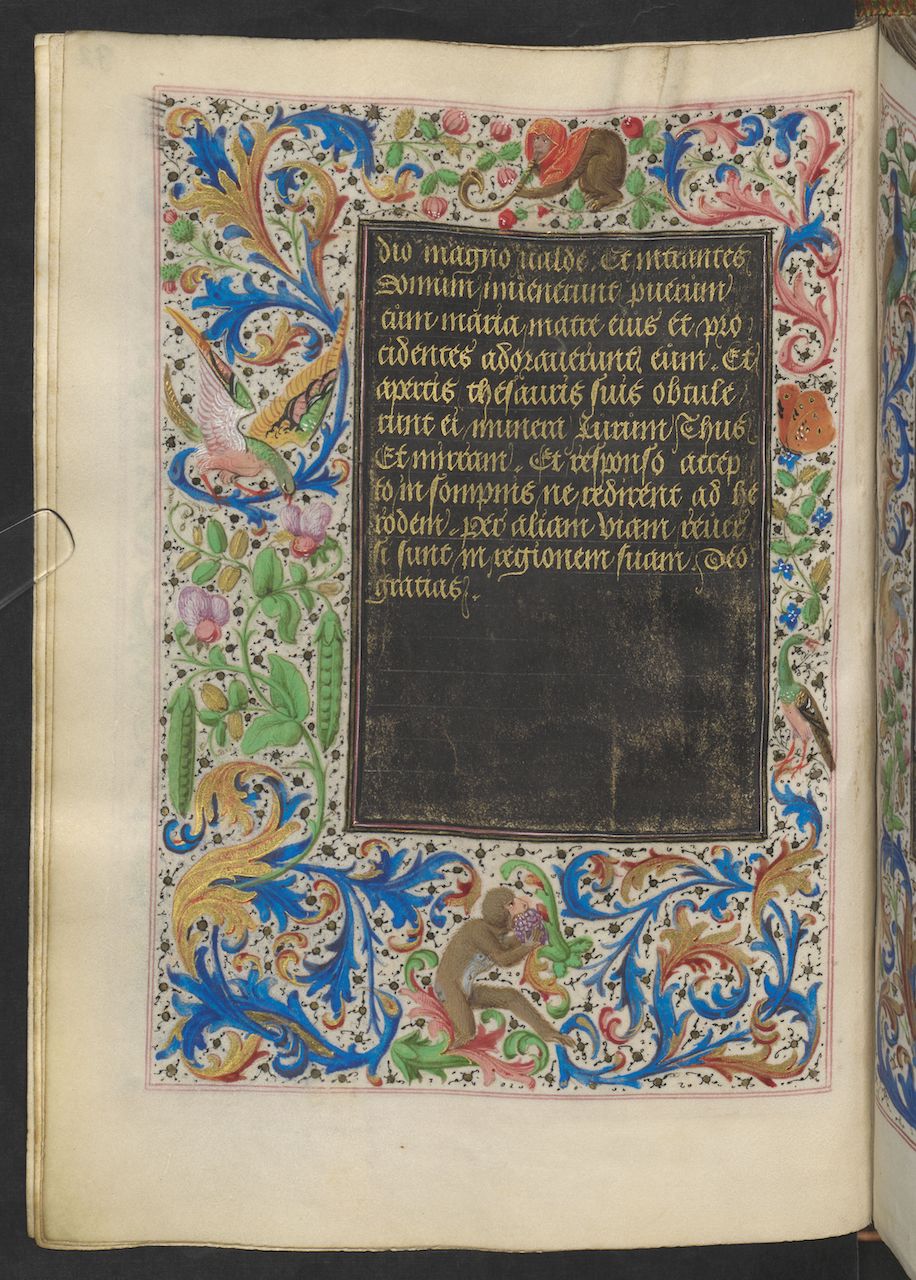 dio magno valde. Et intrantes
Domum invenerunt puerum
cum maria matre eius et pro
cidentes adoraverunt eum. Et
apertis thesauris suis obtule
runt ei munera Aurum Thus
Et mirram. Et responso accep
to in sompnis ne redirent ad he
rodem. per aliam viam rever
si sunt in regionem suam. Deo
gratias.